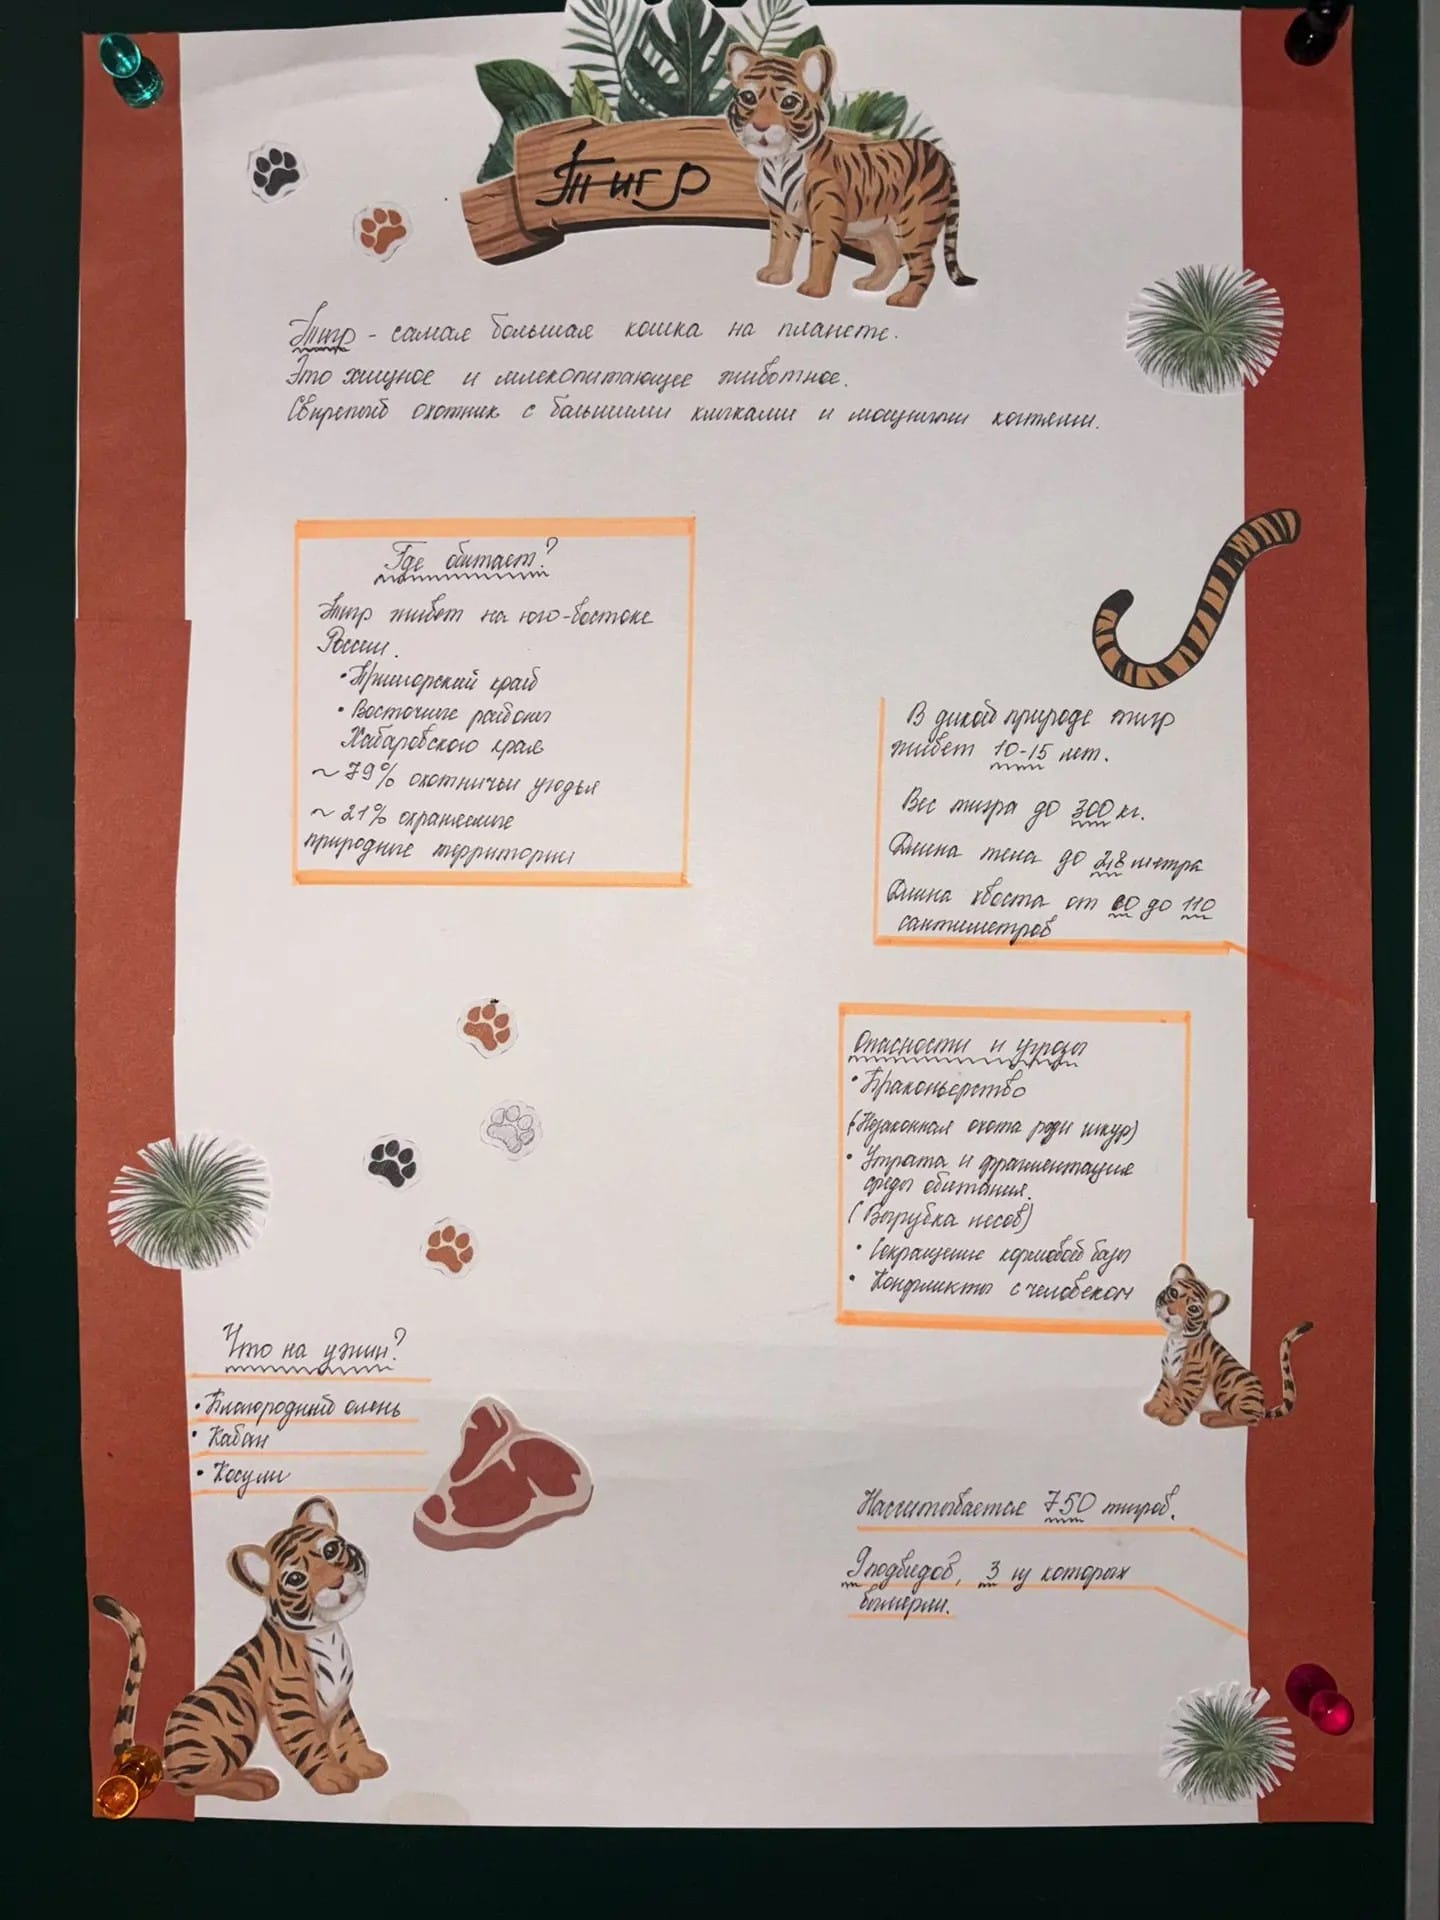 Тигр
Тигр - самая большая кошка на планете.
Это хищное и млекопитающее животное.
Свирепый охотник с большими клыками и мощными когтями.
Где обитает?
Тигр живет на юго-востоке
России.
• Приморский край
• Восточные районы
Хабаровского края
~ 79% охотничьи угодья
~ 21% охраняемые
природные территории
В дикой природе тигр
живет 10-15 лет.
Вес тигра до 300 кг.
Длина тела до 2,8 метра
Длина хвоста от 60 до 110
сантиметров
Опасности и угрозы
• Браконьерство
(Незаконная охота ради шкур)
• Утрата и фрагментация
среды обитания.
(Вырубка лесов)
• Сокращение кормовой базы
• Конфликты с человеком
Что на ужин?
• Благородный олень
• Кабан
• Косули
Насчитывается 750 тигров.
9 подвидов, 3 из которых
вымерли.